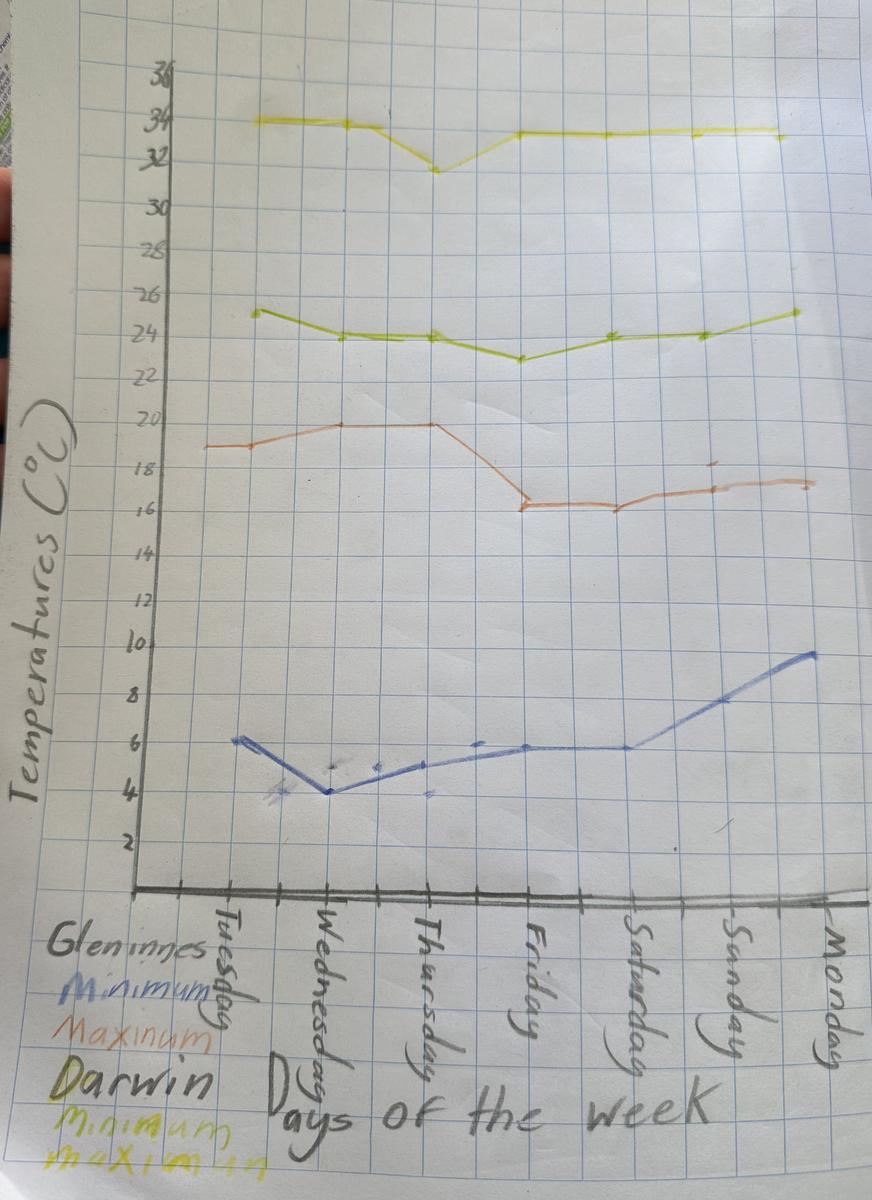 36
34
32
30
28
26
24
22
20
18
16
14
12
10
8
6
4
2
Temperatures (°C)
Tuesday
Wednesday
Thursday
Friday
Saturday
Sunday
Monday
Days of the week
Gleninnes
Minimum
Maxinum
Darwin
Minimum
maximun